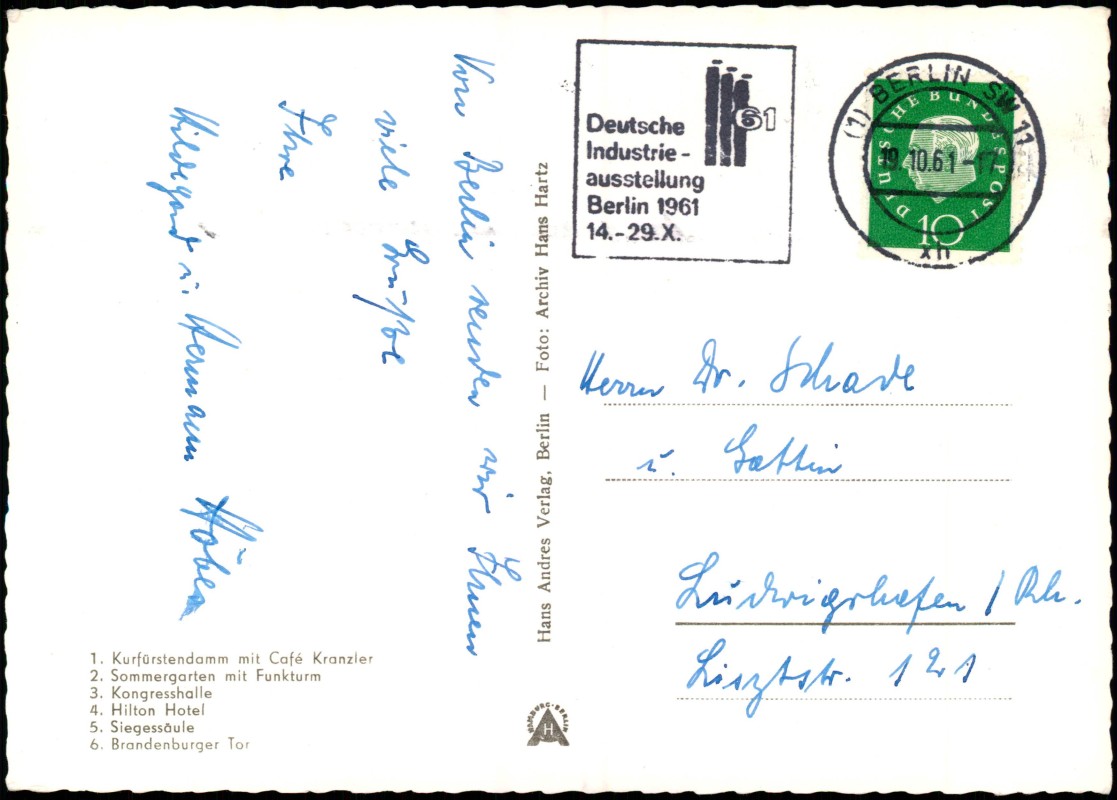 Von Berlin senden wir Ihnen
viele Grüße
Ihre
Hildegard u. Hermann
Deutsche
Industrie-
ausstellung
Berlin 1961
14.-29.X.
61
(1) BERLIN SW 11
19.10.61-17
xh
DEUTSCHE BUNDESPOST
10
Herrn Dr. Schade
u. Gattin
Ludwigshafen / Rh.
Lisztstr. 121
Hans Andres Verlag, Berlin — Foto: Archiv Hans Hartz
HAMBURG-BERLIN
H A
1. Kurfürstendamm mit Café Kranzler
2. Sommergarten mit Funkturm
3. Kongresshalle
4. Hilton Hotel
5. Siegessäule
6. Brandenburger Tor